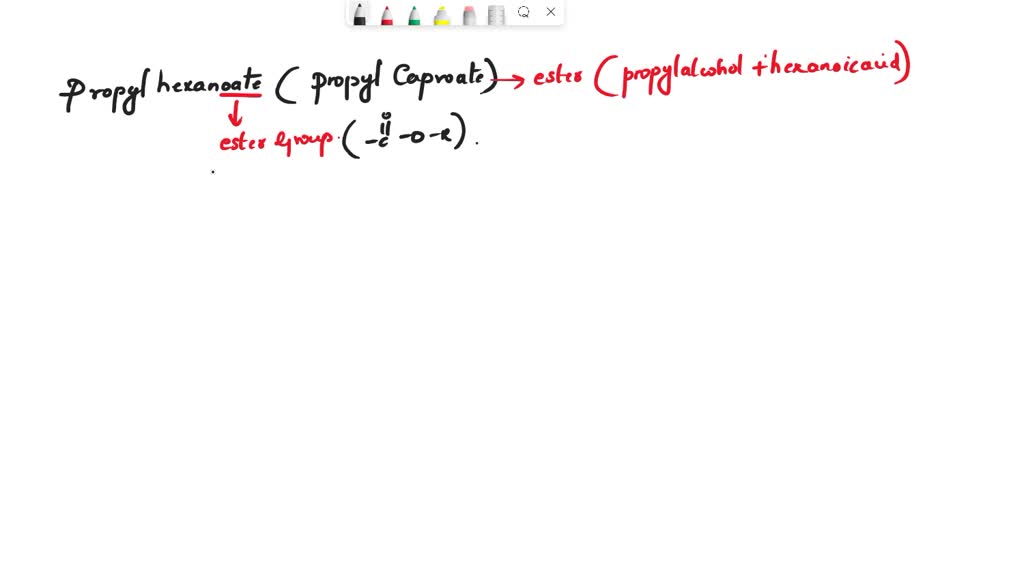 Propyl hexanoate ( Propyl Caproate) → ester (propylalcohol + hexanoicacid)
↓
ester Group. ( -C -O -R ) .
O
||